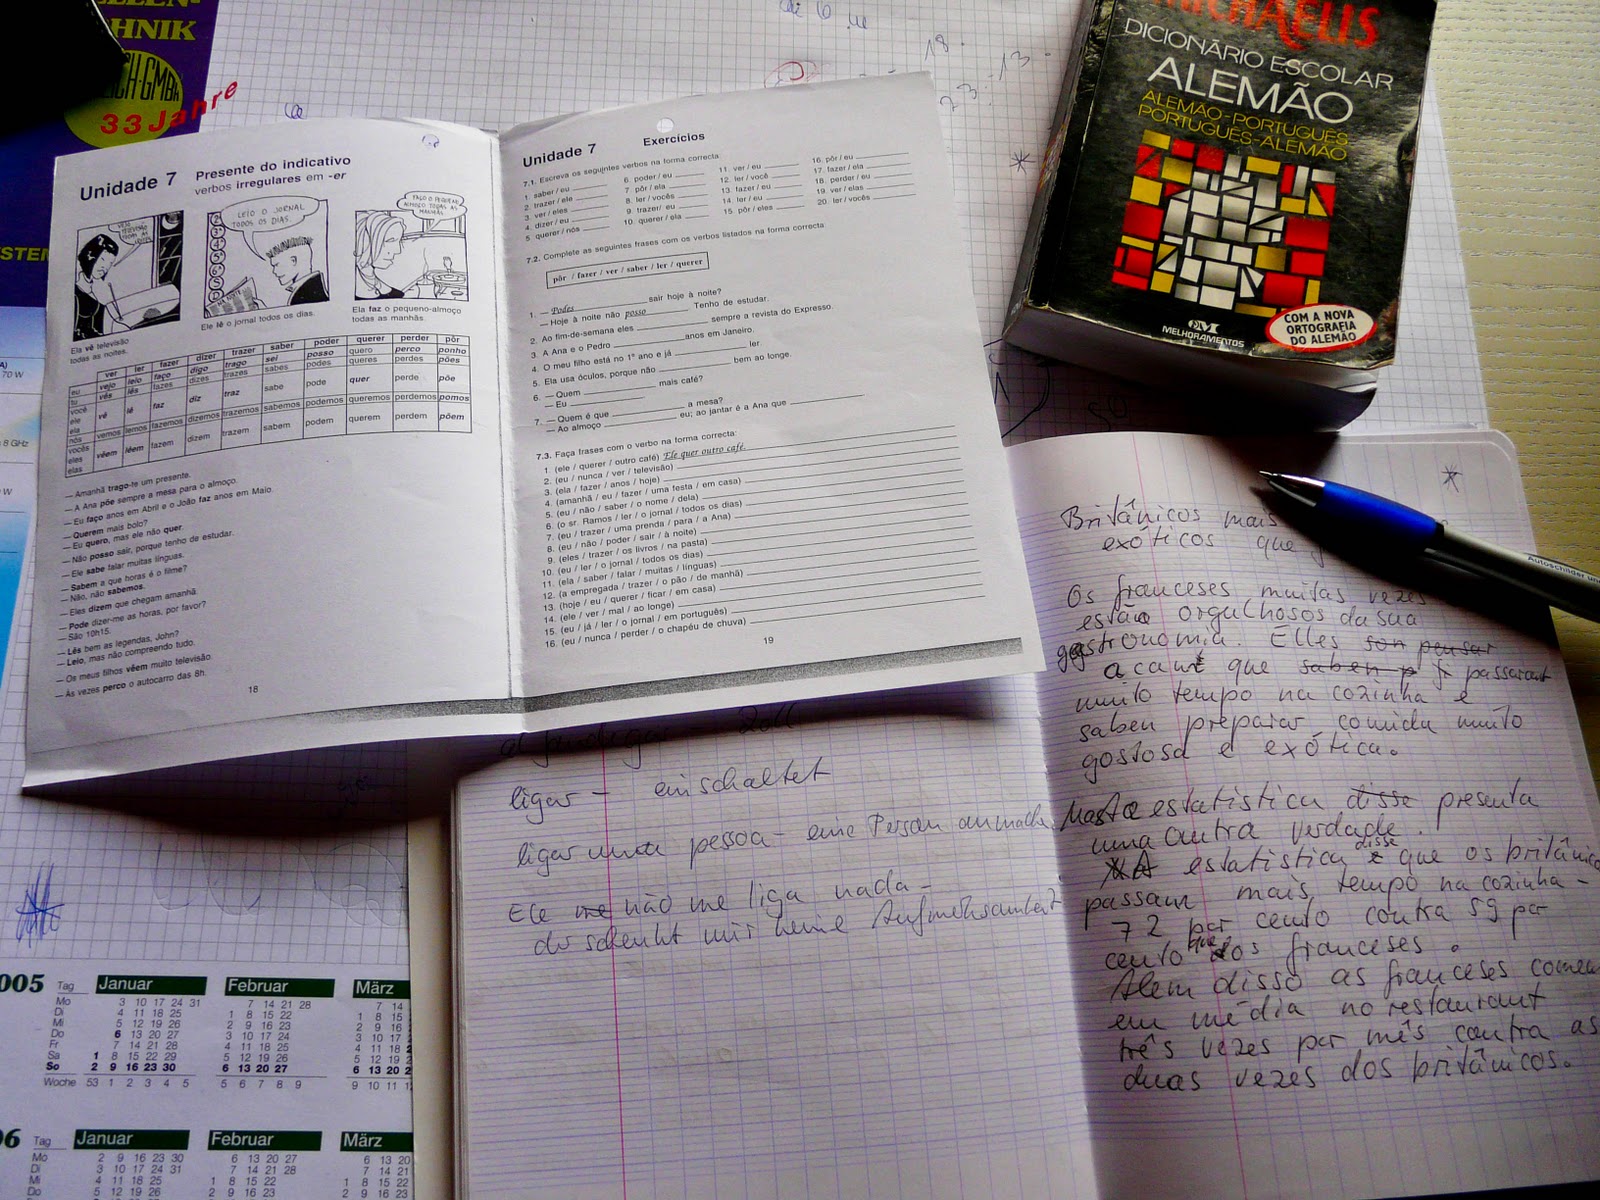 HNIK
33 Jahre
MICHAELIS
DICIONÁRIO ESCOLAR
ALEMÃO
ALEMÃO-PORTUGUÊS
PORTUGUÊS-ALEMÃO
COM A NOVA
ORTOGRAFIA
DO ALEMÃO
MELHORAMENTOS
Unidade 7
Presente do indicativo
verbos irregulares em -er
LEIO O JORNAL
TODOS OS DIAS.
FAÇO O PEQUENO
ALMOÇO TODAS AS
MANHÃS.
Ela vê televisão
todas as noites.
Ele lê o jornal todos os dias.
Ela faz o pequeno-almoço
todas as manhãs.
ver ler fazer dizer trazer saber poder querer perder pôr
eu vejo leio faço digo trago sei posso quero perco ponho
tu vês lês fazes dizes trazes sabes podes queres perdes pões
você
ele vê lê faz diz traz sabe pode quer perde põe
ela
nós vemos lemos fazemos dizemos trazemos sabemos podemos queremos perdemos pomos
vocês
eles vêem lêem fazem dizem trazem sabem podem querem perdem põem
elas
— Amanhã trago-te um presente.
— A Ana põe sempre a mesa para o almoço.
— Eu faço anos em Abril e o João faz anos em Maio.
— Querem mais bolo?
— Eu quero, mas ele não quer.
— Não posso sair, porque tenho de estudar.
— Ele sabe falar muitas línguas.
— Sabem a que horas é o filme?
— Não, não sabemos.
— Eles dizem que chegam amanhã.
— Pode dizer-me as horas, por favor?
— São 10h15.
— Lês bem as legendas, John?
— Leio, mas não compreendo tudo.
— Os meus filhos vêem muito televisão.
— Às vezes perco o autocarro das 8h.
18
Unidade 7
Exercícios
7.1. Escreva os seguintes verbos na forma correcta:
1. saber / eu
2. trazer / ele
3. ver / eles
4. dizer / eu
5. querer / nós
6. poder / eu
7. pôr / ela
8. ler / vocês
9. trazer / eu
10. querer / ela
11. ver / eu
12. ler / você
13. fazer / eu
14. ler / eu
15. pôr / eles
16. pôr / eu
17. fazer / ela
18. perder / eu
19. ver / elas
20. ler / vocês
7.2. Complete as seguintes frases com os verbos listados na forma correcta:
pôr / fazer / ver / saber / ler / querer
1. — Podes sair hoje à noite?
— Hoje à noite não posso. Tenho de estudar.
2. Ao fim-de-semana eles sempre a revista do Expresso.
3. A Ana e o Pedro anos em Janeiro.
4. O meu filho está no 1º ano e já ler.
5. Ela usa óculos, porque não bem ao longe.
6. — Quem mais café?
— Eu
7. — Quem é que a mesa?
— Ao almoço eu; ao jantar é a Ana que
7.3. Faça frases com o verbo na forma correcta:
1. (ele / querer / outro café) Ele quer outro café.
2. (eu / nunca / ver / televisão)
3. (ela / fazer / anos / hoje)
4. (amanhã / eu / fazer / uma festa / em casa)
5. (eu / não / saber / o nome / dela)
6. (o sr. Ramos / ler / o jornal / todos os dias)
7. (eu / trazer / uma prenda / para / a Ana)
8. (eu / não / poder / sair / à noite)
9. (eles / trazer / os livros / na pasta)
10. (eu / ler / o jornal / todos os dias)
11. (ela / saber / falar / muitas / línguas)
12. (a empregada / trazer / o pão / de manhã)
13. (hoje / eu / querer / ficar / em casa)
14. (ele / ver / mal / ao longe)
15. (eu / já / ler / o jornal / em português)
16. (eu / nunca / perder / o chapéu de chuva)
19
Autoschilder
ligar – einschaltet
ligar uma pessoa – eine Person
Ele me não me liga nada –
mir keine
Britânicos mais
exóticos que
Os franceses muitas vezes
estão orgulhosos da sua
gastronomia. Elles son pensar
que saben
muito tempo na cozinha e
saben preparar comida muito
gostosa e exótica.
estatística disse presenta
uma outra verdade.
A estatística disse que os britânico
passam mais tempo na cozinha –
72 por cento contra 59 por
cento que dos franceses.
Alem disso as franceses comem
em média no restaurant
três vezes por mês contra as
duas vezes dos britânicos.
005 Tag Januar Februar März
Mo 3 10 17 24 31 7 14 21 28 7 14
Di 4 11 18 25 1 8 15 22 1 8 15
Mi 5 12 19 26 2 9 16 23 2 9 16
Do 6 13 20 27 3 10 17 24 3 10 17
Fr 7 14 21 28 4 11 18 25 4 11 18
Sa 1 8 15 22 29 5 12 19 26 5 12 19
So 2 9 16 23 30 6 13 20 27 6 13 20
Woche 53 1 2 3 4 5 5 6 7 8 9 9 10 11
06 Tag Januar Februar März
Mo 2 9 16 23 30 6 13 20 27 6 13 20
Di 3 10 17 24 31 7 14 21 28 7 14 21
Mi 4 11 18 25 1 8 15 22 1 8 15 22
Do 5 12 19 26 2 9 16 23 2 9 16